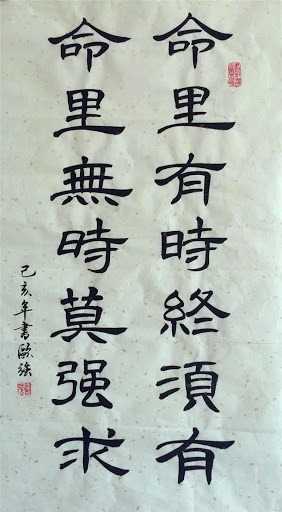 命里有時終須有
命里無時莫强求
己亥年書歐瑛